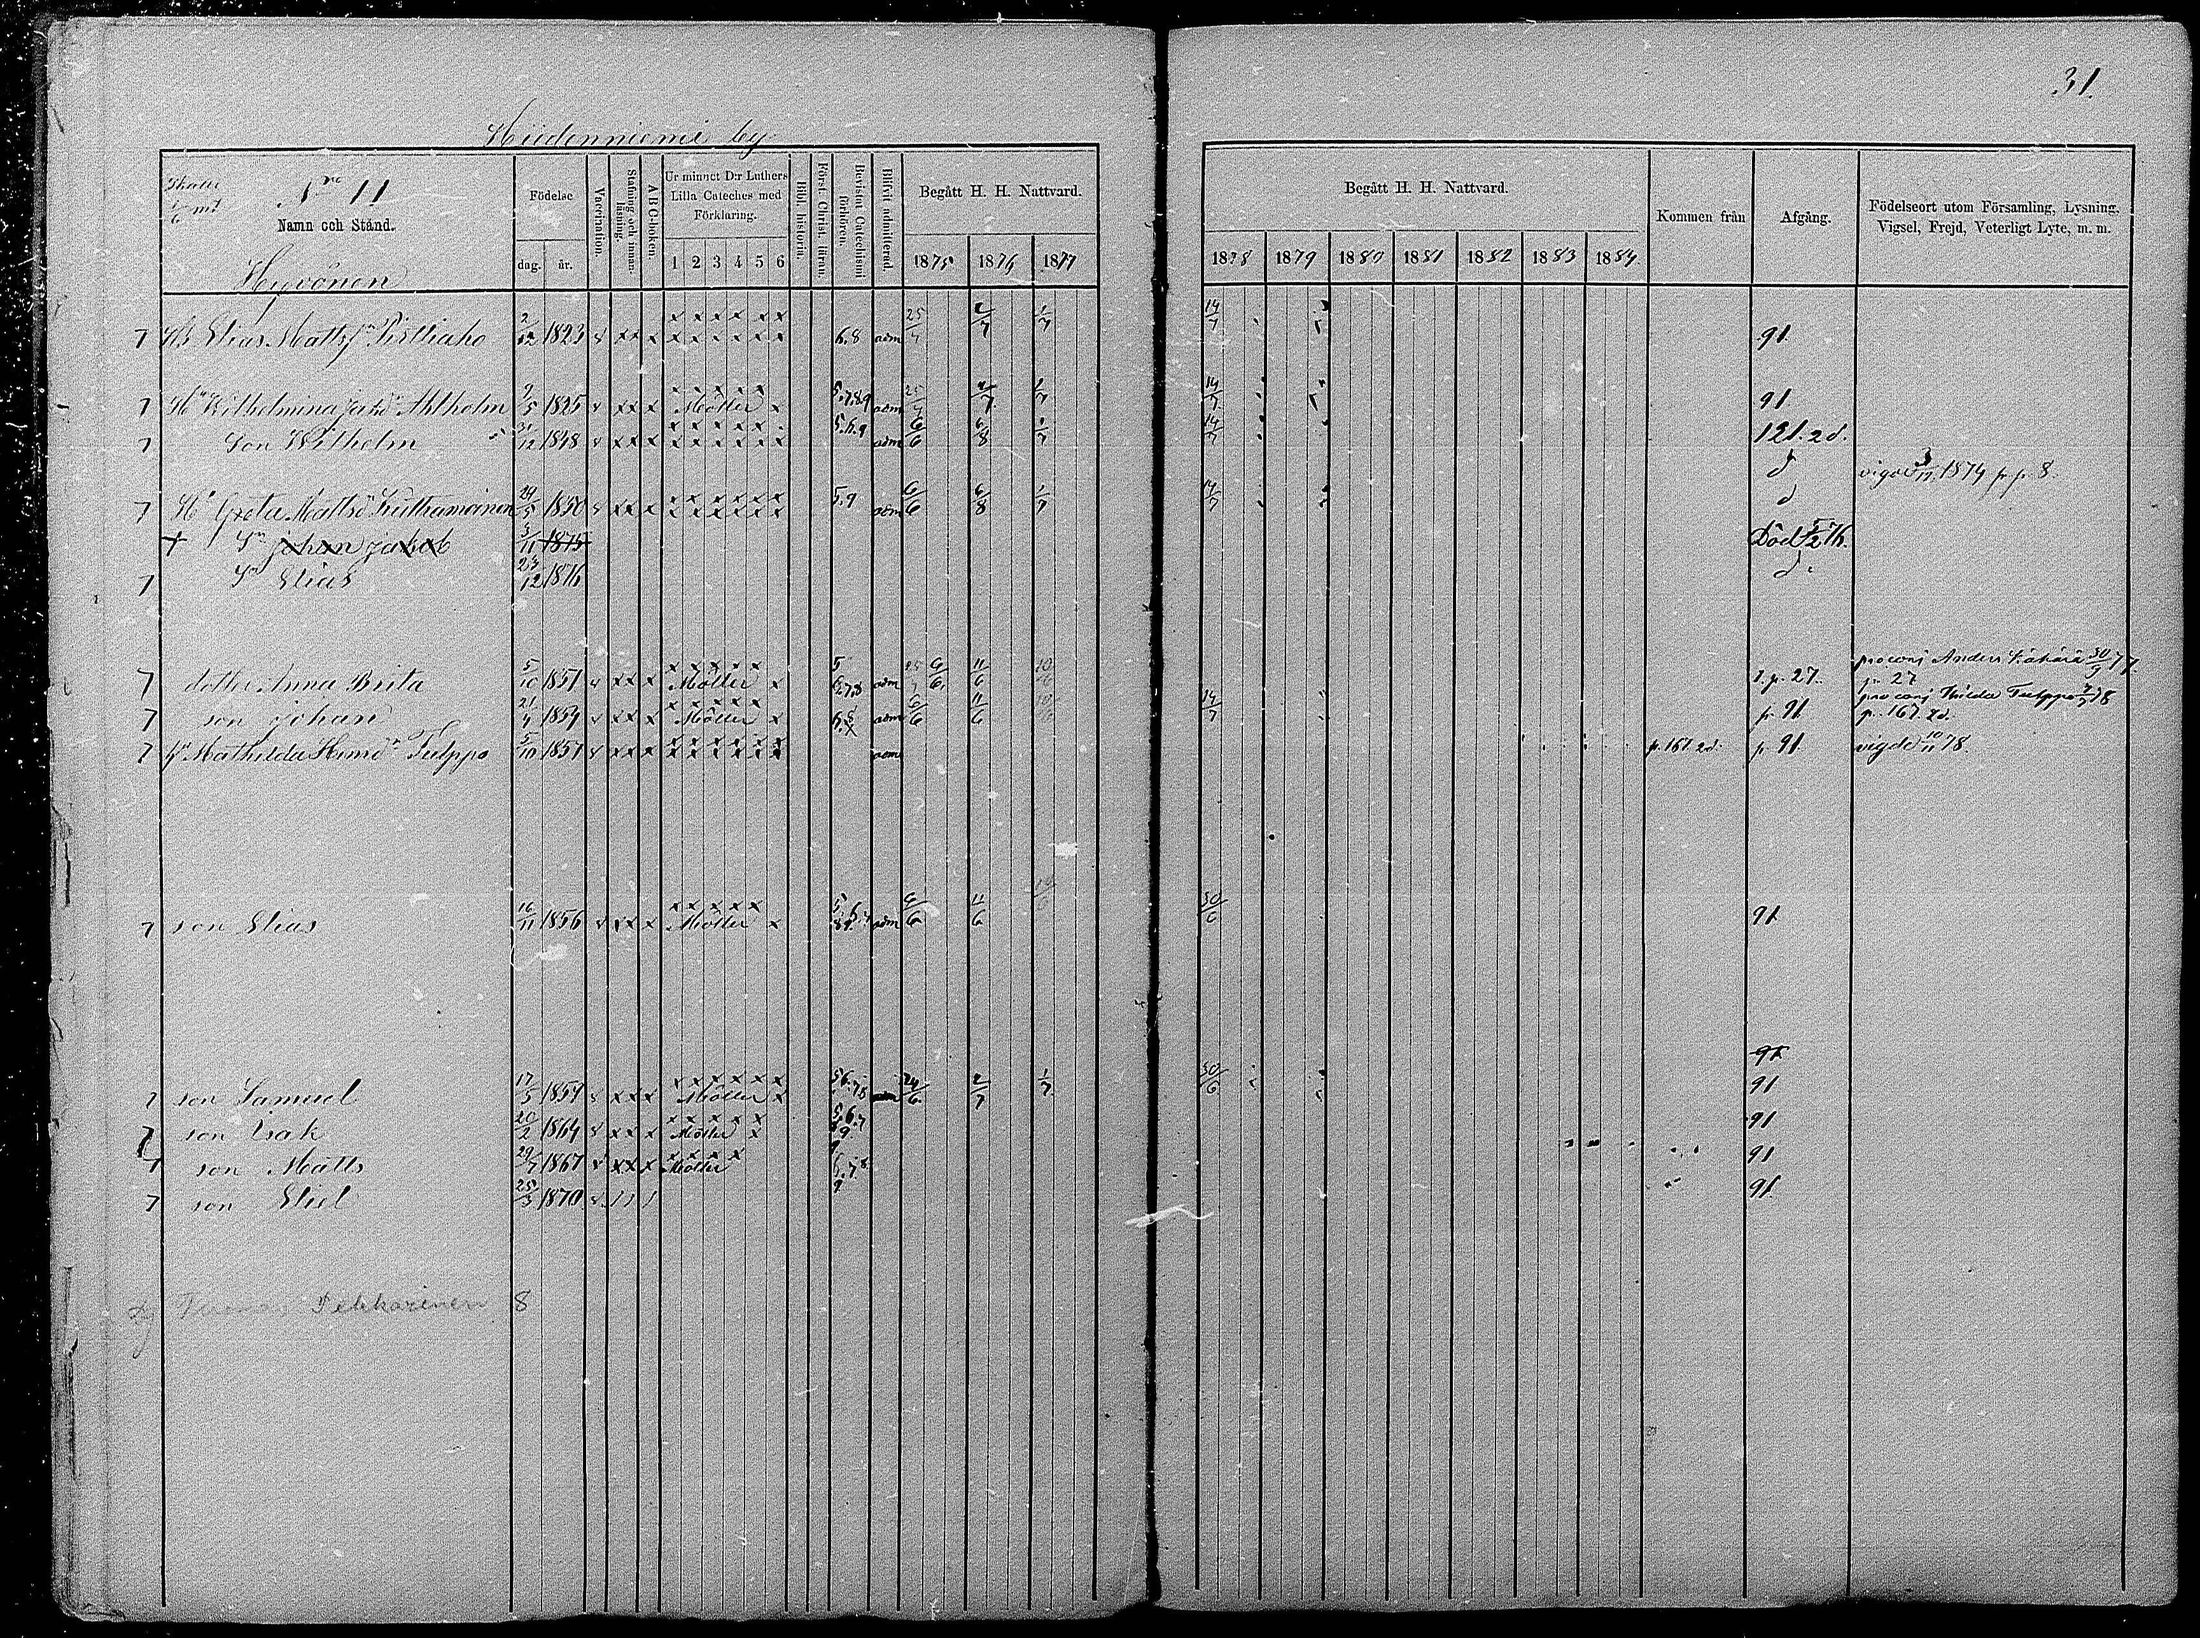 31.
Hiidenniemi by
Skatte N:ro 11
1/6 mt
Namn och Stånd.
Hyvönen
Födelse
dag. år.
Vaccination.
Stafning och innan-läsning.
A B C-boken.
Ur minnet D:r Luthers Lilla Cateches med Förklaring.
1 2 3 4 5 6
Bibl. historia.
Först. Christ. läran.
Bevistat Catechismi förhören.
Blifvit admitterad.
Begått H. H. Nattvard.
1875 1876 1877
Begått H. H. Nattvard.
1878 1879 1880 1881 1882 1883 1884
Kommen från
Afgång.
Födelseort utom Församling, Lysning, Vigsel, Frejd, Veterligt Lyte, m. m.
7 Elias Matts 2/12 1823 v xx x x x x x x x 6.8 adm 25/4 2/7 1/7 14/7 91.
7 Wilhelmina Jak:dr Ahlholm 9/5 1825 v xx x Möller x 5.7.8.9 adm 25/4 2/7 1/7 14/7 91
7 Son Wilhelm 31/12 1848 v xxx x x x x x x 5.6.9 adm 6/6 6/8 1/7 14/7 121. 2d.
d vigde 3/11 1874 fr. p. 8.
7 Hu Greta Mattsd:r 29/5 1850 v xx x x x x x x x 5.9 adm 6/6 6/8 1/7 14/7 d
+ Sn Johan Jakob 3/11 1875 Död 5/2 76.
7 Sn Elias 23/12 1876 d:
7 dotter Anna Brita 5/10 1851 v xx x Möller x 5 6.7.8 adm 25/4 6/6 11/6 10/6 1. p. 27. pro conj Anders 30/9 77. p. 27
7 son Johan 21/4 1854 v xx x Möller x adm 6/6 11/6 10/6 14/7 p. 91 pro conj Hilda Tulppo 78 p. 167. 2d.
7 hu Mathilda Tulppo 5/10 1851 v xx x x x x x x x adm p. 167. 2d. p. 91 vigde 10/11 78.
7 son Elias 16/11 1856 v xx x Möller x adm 6/6 11/6 30/6 91
91
7 son Samuel 17/5 1859 v xx x Möller x 5.6.7.8 adm 24/6 2/7 1/7 30/6 91
7 son Isak 20/2 1864 v xx x Möller x 5.6.7 9 91
7 son Matts 29/7 1867 v xx x Möller 6.7.8 91
7 son Eliel 25/3 1870 v 9 91
Pekkarinen 8